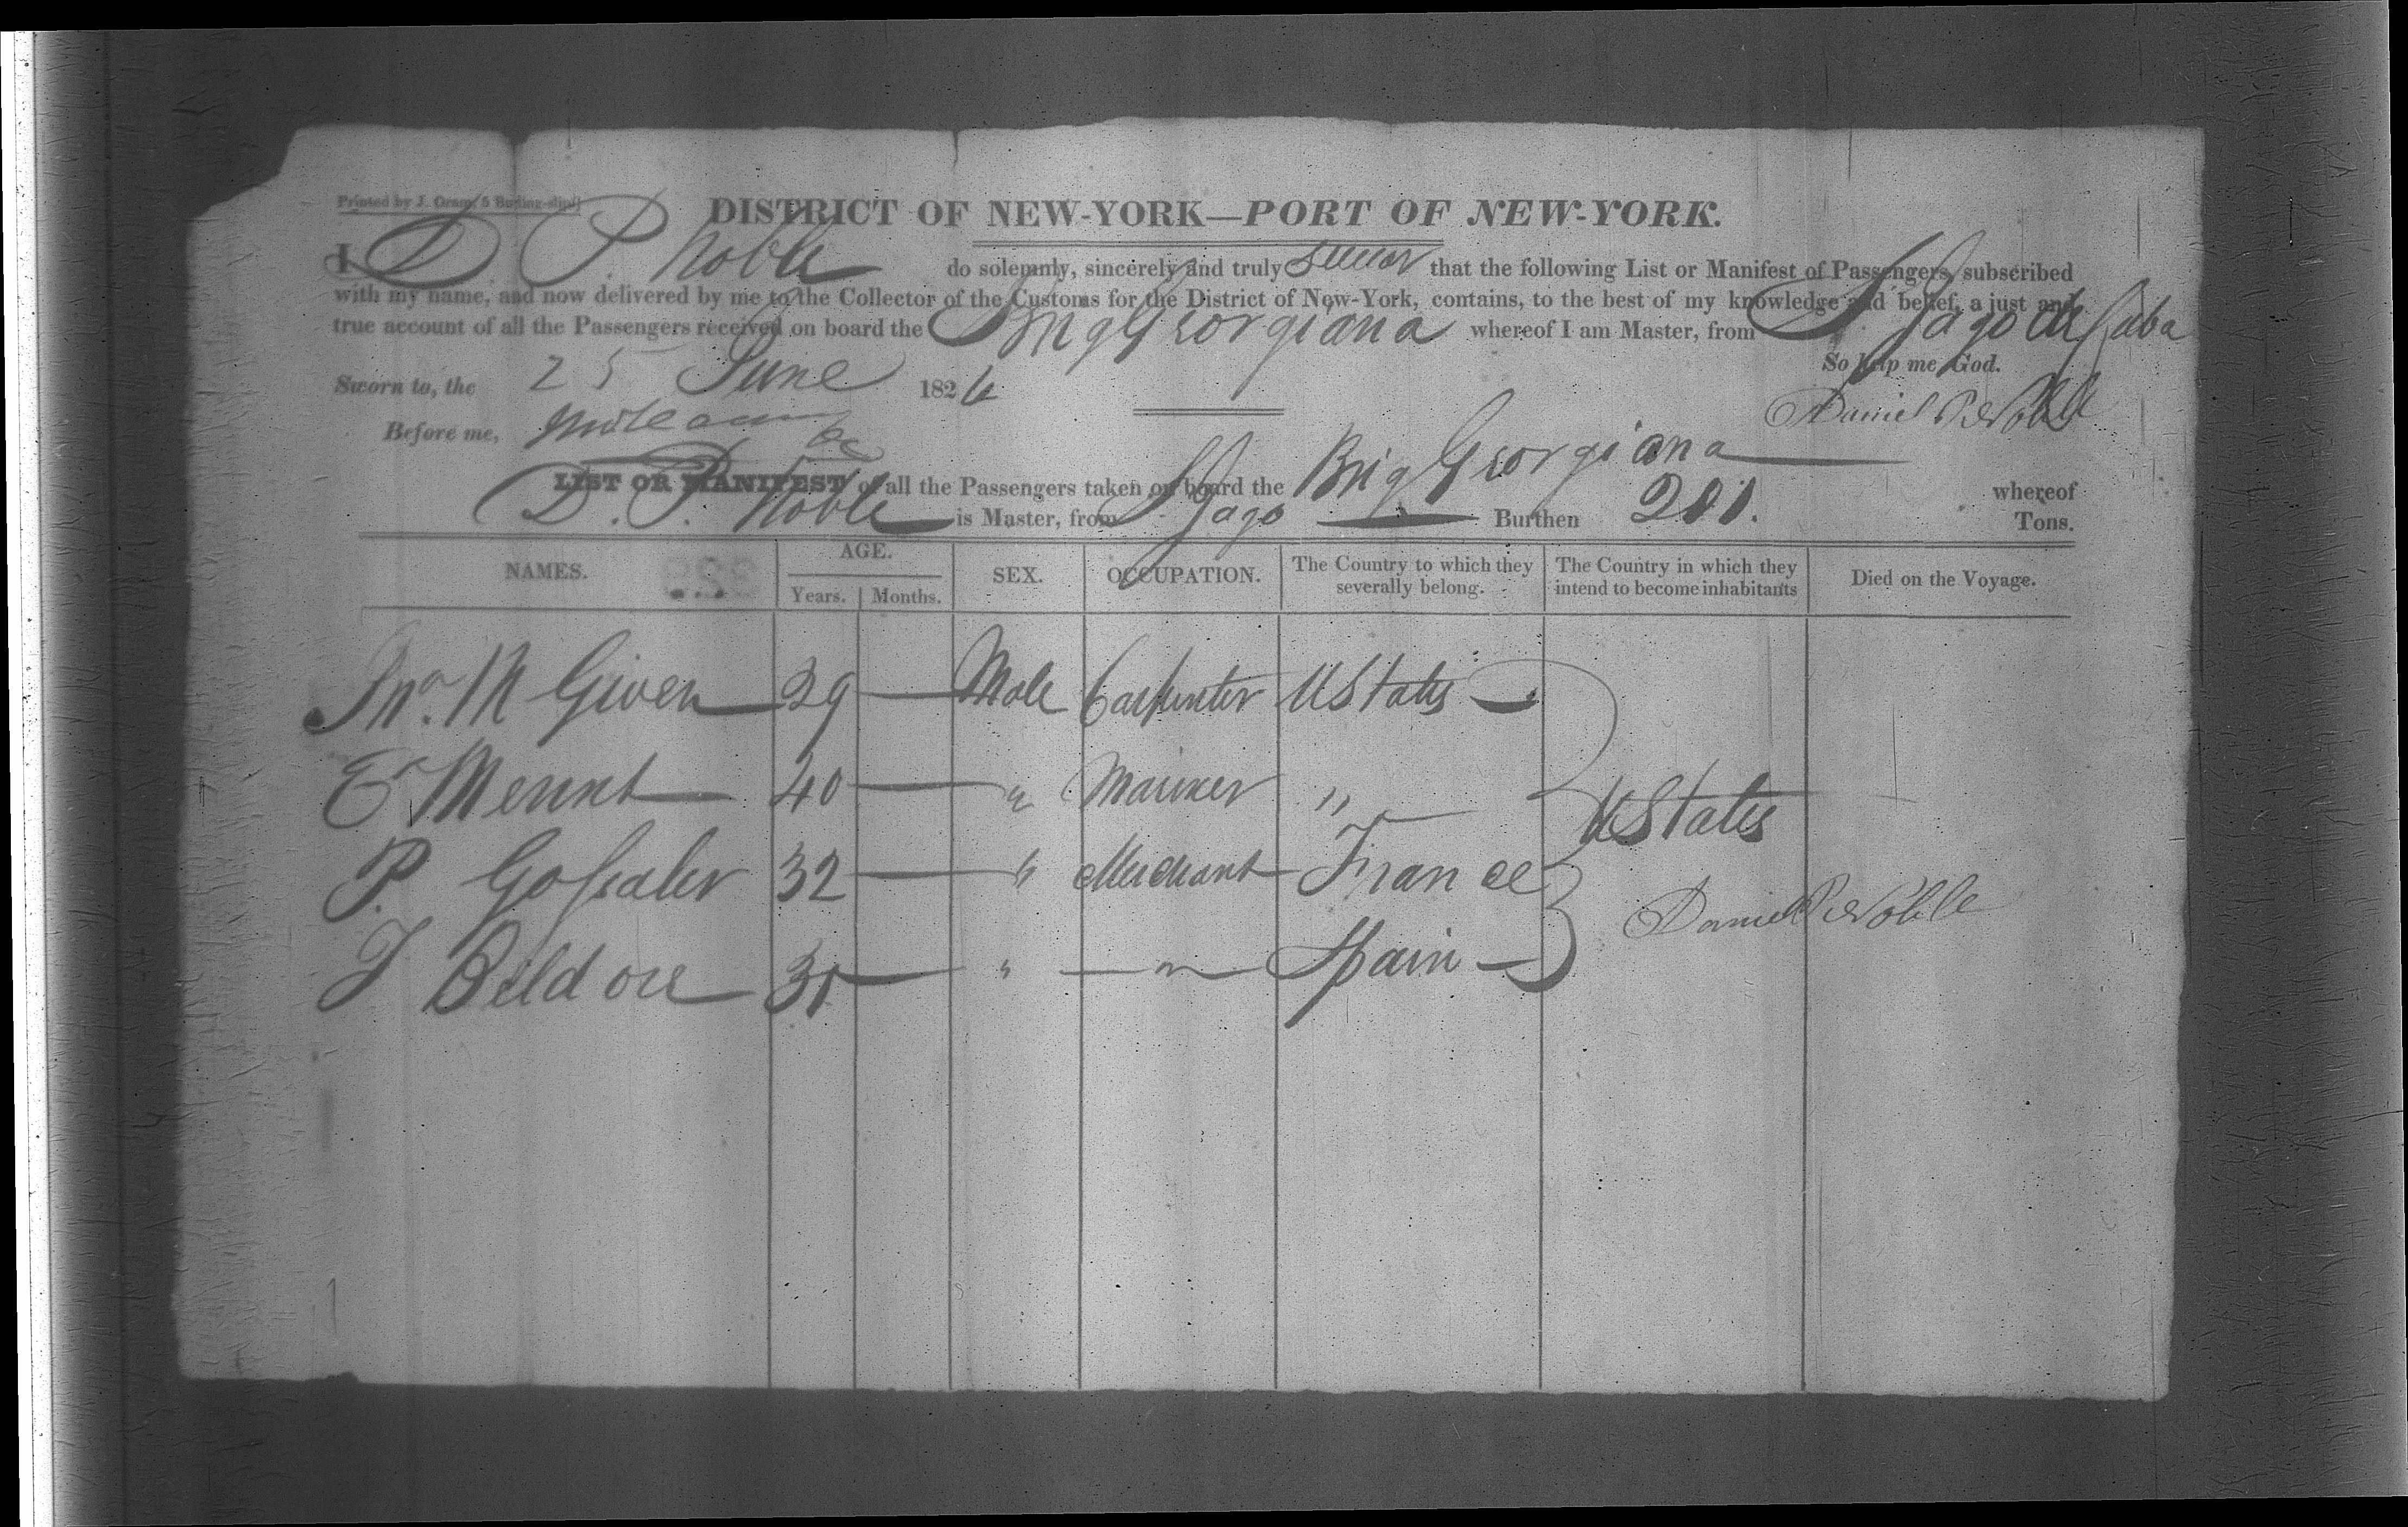 Printed by J. Oram, 5 Burling-slip.
DISTRICT OF NEW-YORK—PORT OF NEW-YORK.
I D P. Noble do solemnly, sincerely and truly swear that the following List or Manifest of Passengers, subscribed
with my name, and now delivered by me to the Collector of the Customs for the District of New-York, contains, to the best of my knowledge and belief, a just and
true account of all the Passengers received on board the Brig Georgiana whereof I am Master, from St Jago de Cuba
So help me God.
Sworn to, the 25 June 1826
Daniel P Noble
Before me,
LIST OR MANIFEST of all the Passengers taken on board the Brig Georgiana whereof
D. P. Noble is Master, from St Jago Burthen 201. Tons.
NAMES. AGE. Years. Months. SEX. OCCUPATION. The Country to which they severally belong. The Country in which they intend to become inhabitants Died on the Voyage.
Jno. M Given 29 Male Carpenter UStates
E 40 " Mariner "
UStates
P. 32 " Merchant France
Daniel P Noble
31 " " Spain